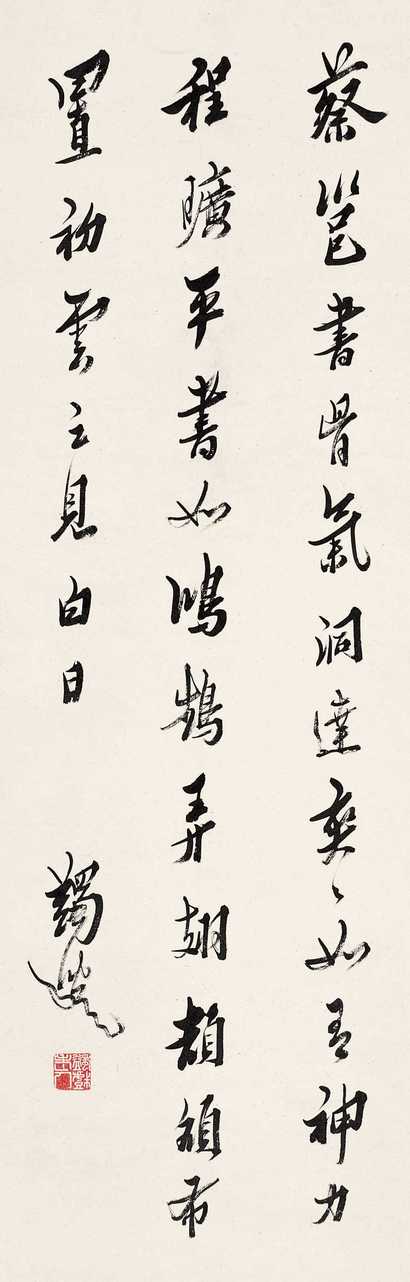 蔡邕書骨氣洞達爽〻如有神力
程曠平書如鴻鵠弄翅頡頏布
置初雲之見白日
蠲叟
蠲戲老人